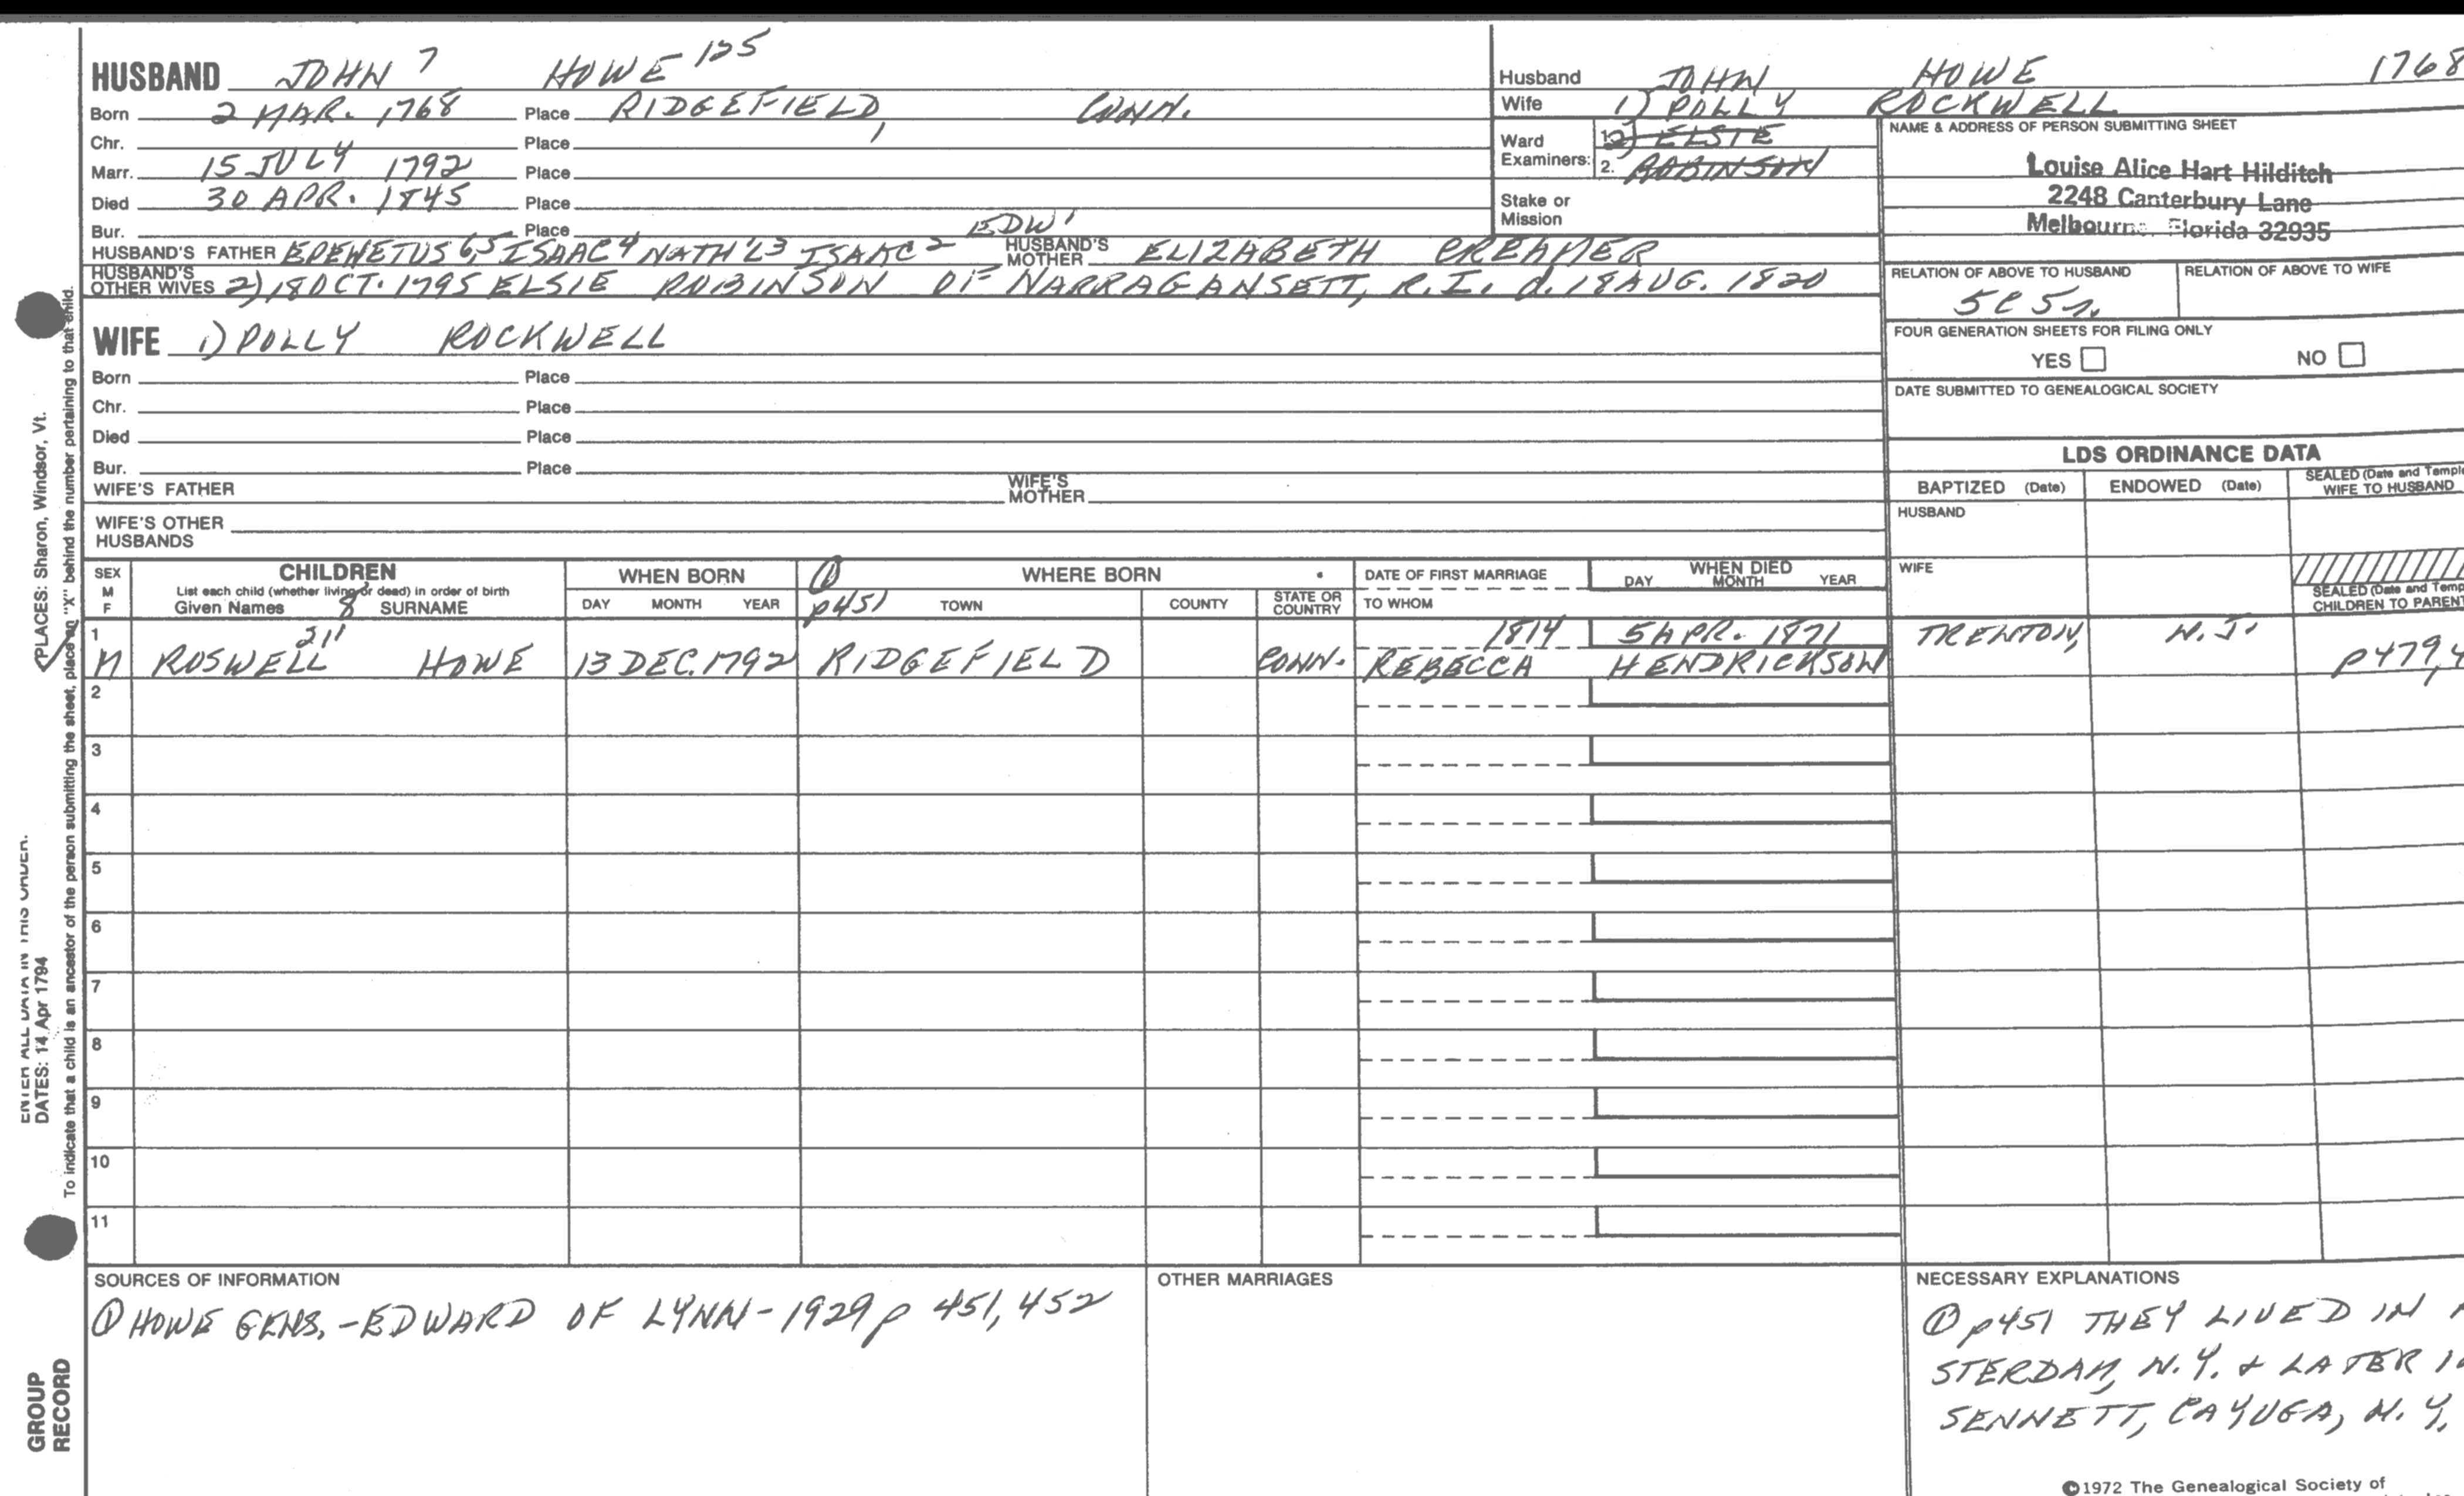 HUSBAND JOHN 7 HOWE 125
Born 2 MAR. 1768 Place RIDGEFIELD, CONN.
Chr. Place
Marr. 15 JULY 1792 Place
Died 30 APR. 1845 Place
Bur. Place
HUSBAND'S FATHER EPEWETUS 6 5 ISAAC 4 NATH'L 3 ISAAC 2 EDW 1 HUSBAND'S MOTHER ELIZABETH CREAMER
HUSBAND'S OTHER WIVES 2) 18 OCT. 1795 ELSIE ROBINSON OF NARRAGANSETT, R.I. d. 18 AUG. 1820
WIFE 1) POLLY ROCKWELL
Born Place
Chr. Place
Died Place
Bur. Place
WIFE'S FATHER WIFE'S MOTHER
WIFE'S OTHER HUSBANDS
Husband JOHN HOWE 1768
Wife 1) POLLY ROCKWELL
Ward Examiners: 1. 2) ELSIE
2. ROBINSON
Stake or Mission
NAME & ADDRESS OF PERSON SUBMITTING SHEET
Louise Alice Hart Hilditch
2248 Canterbury Lane
Melbourne Florida 32935
RELATION OF ABOVE TO HUSBAND RELATION OF ABOVE TO WIFE
5C 5r.
FOUR GENERATION SHEETS FOR FILING ONLY
YES NO
DATE SUBMITTED TO GENEALOGICAL SOCIETY
LDS ORDINANCE DATA
BAPTIZED (Date) ENDOWED (Date) SEALED (Date and Temple WIFE TO HUSBAND
HUSBAND
WIFE
SEALED (Date and Temp
CHILDREN TO PARENT
SEX M F
CHILDREN
List each child (whether living or dead) in order of birth
Given Names 8 SURNAME
WHEN BORN
DAY MONTH YEAR
① WHERE BORN
p451 TOWN COUNTY STATE OR COUNTRY
DATE OF FIRST MARRIAGE
TO WHOM
WHEN DIED
DAY MONTH YEAR
1 211 1814 5 APR. 1871 TRENTON, N.J.
M ROSWELL HOWE 13 DEC. 1792 RIDGEFIELD CONN. REBECCA HENDRICKSON p479,4
2
3
4
5
6
7
8
9
10
11
SOURCES OF INFORMATION
① HOWE GENS. - EDWARD OF LYNN - 1929 p 451, 452
OTHER MARRIAGES
NECESSARY EXPLANATIONS
① p451 THEY LIVED IN
STERDAM, N.Y. & LATER
SENNETT, CAYUGA, N.Y.
©1972 The Genealogical Society of
PLACES: Sharon, Windsor, Vt.
ENTER ALL DATA IN THIS ORDER.
DATES: 14 Apr 1794
To indicate that a child is an ancestor of the person submitting the sheet, place an "X" behind the number pertaining to that child.
GROUP
RECORD